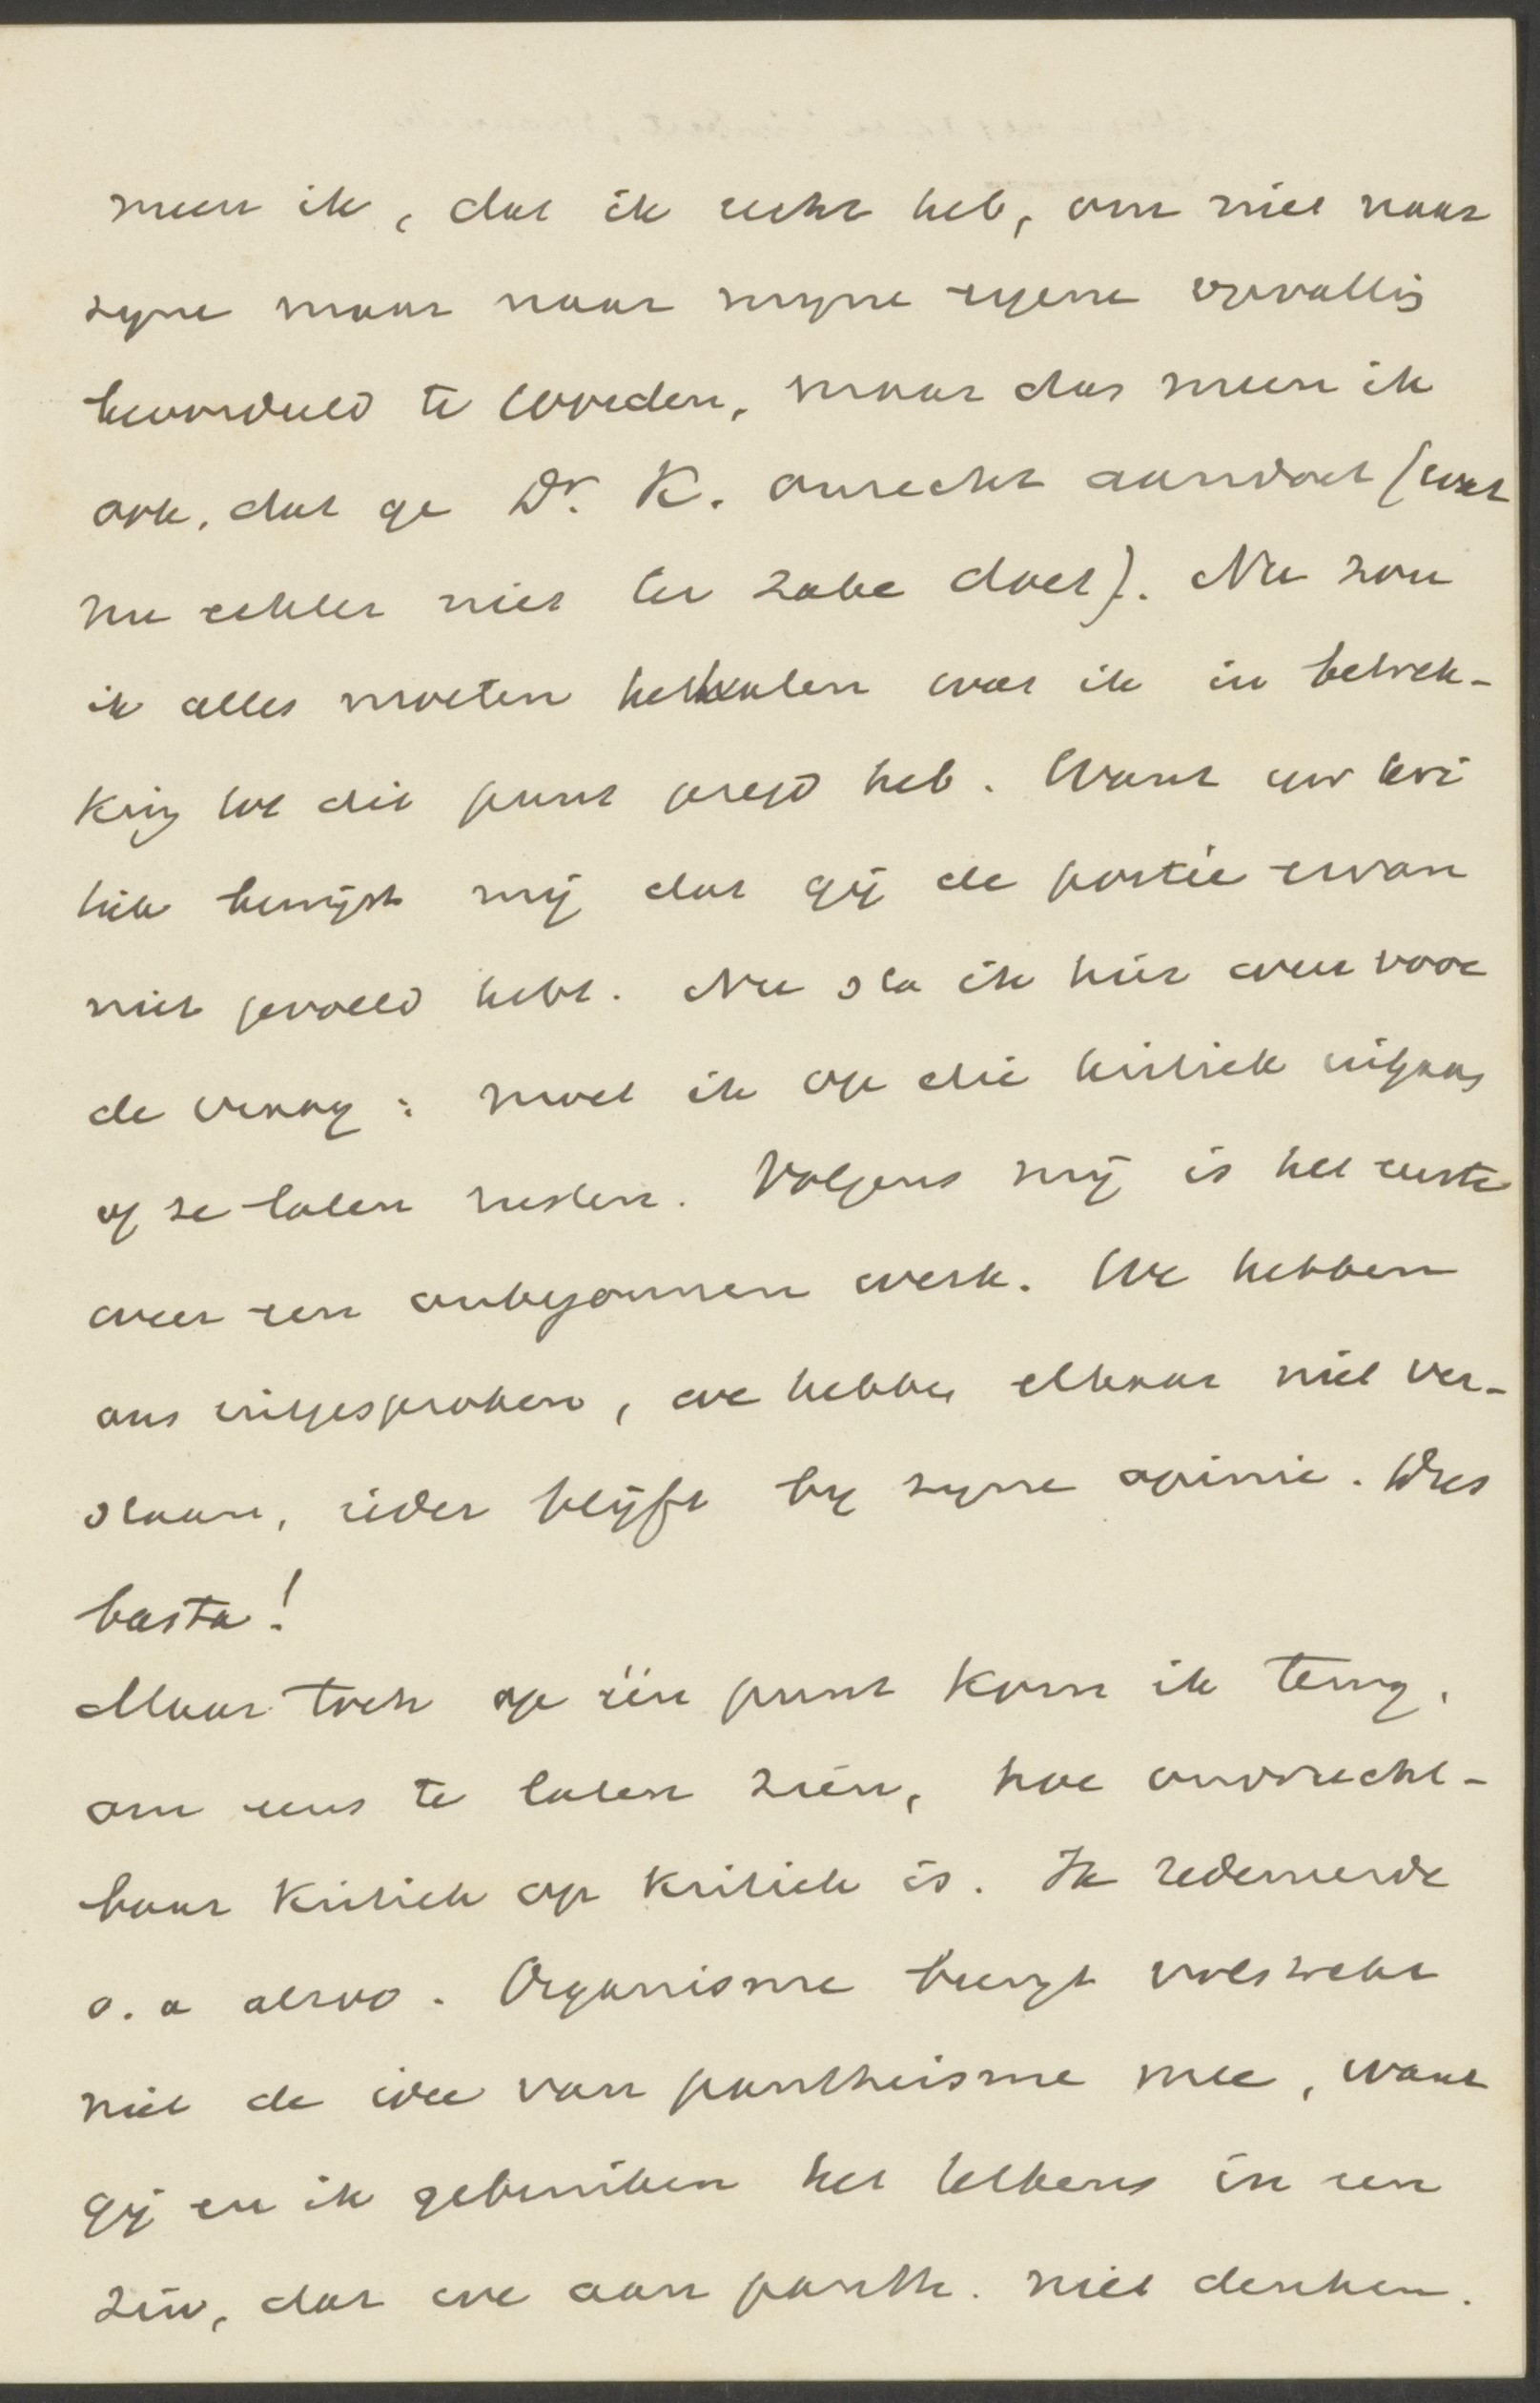 meen ik, dat ik recht heb, om niet naar
zyne maar naar myne eigene opvatting
beoordeeld te worden, maar dat meen ik
ook, dat ge Dr. K. onrecht aandoet (wat
nu echter niet ter zake doet). Nu zou
ik alles moeten herhalen wat ik in betrek-
king tot dit punt gezegd heb. Want uw kri
tiek bewijst mij dat gij de portée ervan
niet gevoeld hebt. Nu sta ik hier weer voor
de vraag: moet ik op die kritiek ingaan
of ze laten rusten. Volgens mij is het eerste
weer een onbegonnen werk. We hebben
ons uitgesproken, we hebben elkaar niet ver-
staan, ieder blijft by zyne opinie. Dus
basta!
Maar toch op één punt kom ik terug,
om eens te laten zien, hoe onvrucht-
baar kritiek op kritiek is. Ik redeneerde
o.a alzoo. Organisme brengt volstrekt
niet de idee van pantheisme mee, want
gij en ik gebruiken het telkens in een
zin, dat we aan panth. niet denken.